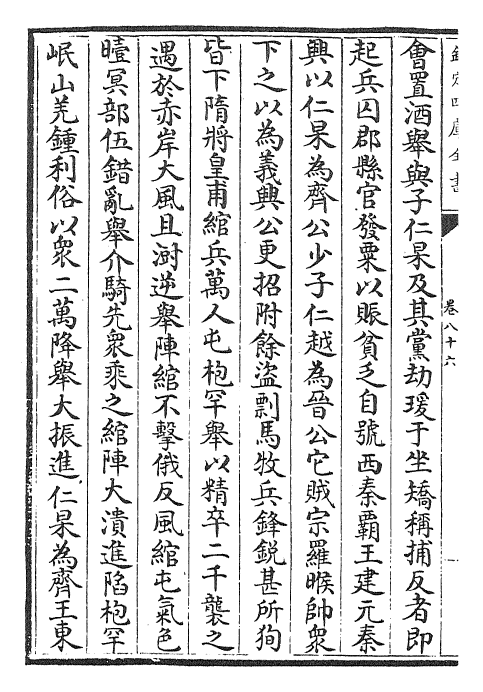 欽定四庫全書
卷八十六
會置酒舉與子仁杲及其黨劫瑗于坐矯稱捕反者即
起兵囚郡縣官發粟以賑貧乏自號西秦霸王建元秦
興以仁杲為齊公少子仁越為晉公它賊宗羅㬋帥衆
下之以為義興公更招附餘盜剽馬牧兵鋒鋭甚所狥
皆下隋將皇甫綰兵萬人屯枹罕舉以精卒二千襲之
遇於赤岸大風且澍逆舉陣綰不擊俄反風綰屯氣色
曀冥部伍錯亂舉介騎先衆乘之綰陣大潰進陷枹罕
岷山羌鍾利俗以衆二萬降舉大振進仁杲為齊王東